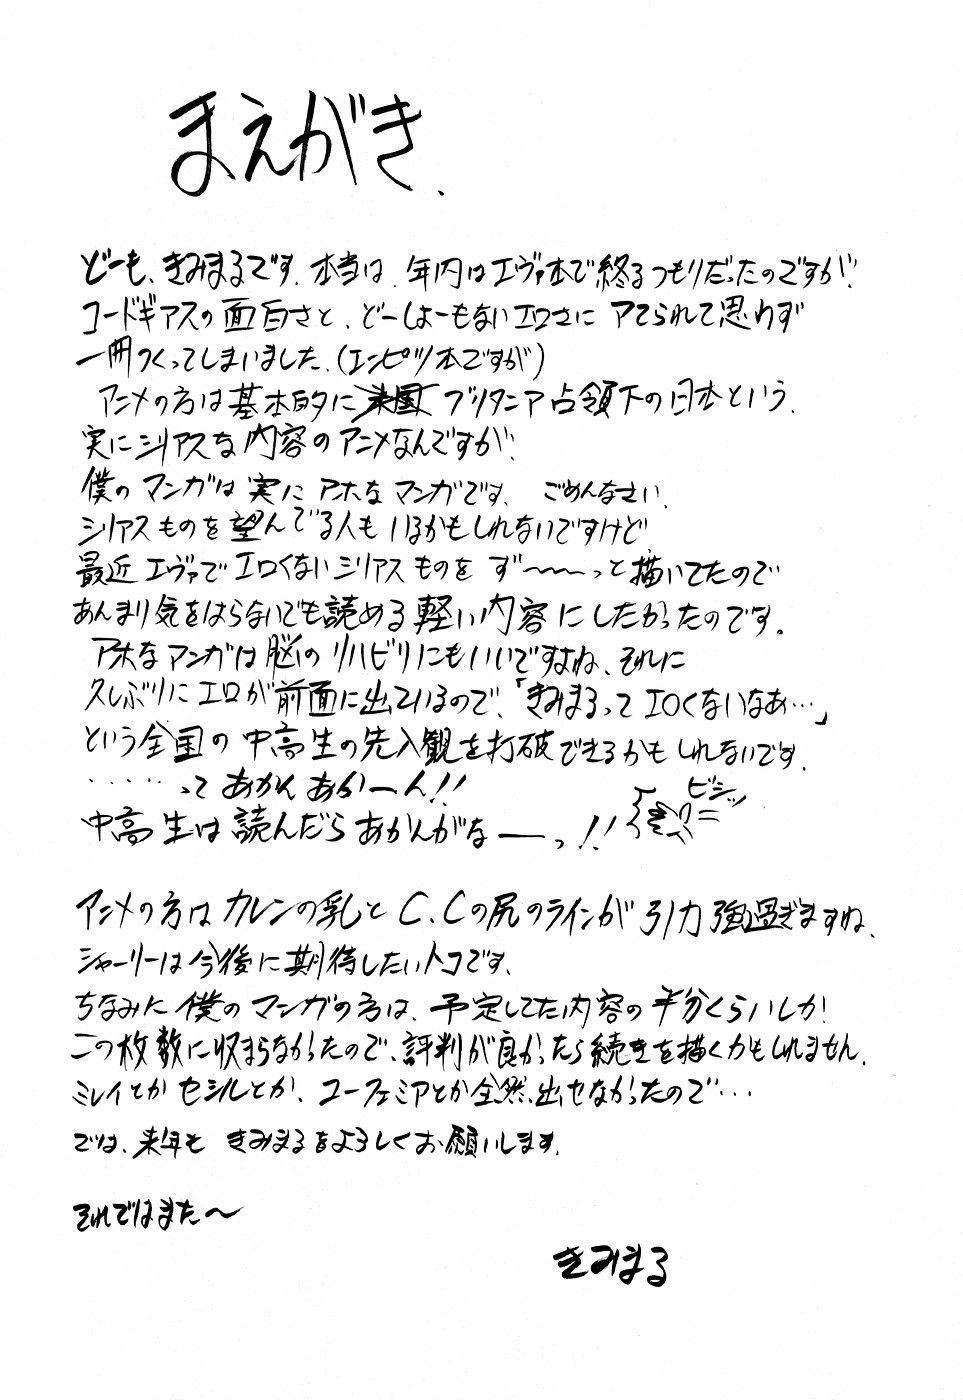 まえがき、
どーも、きみまるです。本当は、年内はエヴァ本で終るつもりだったのですが、
コードギアスの面白さと、どーしょーもないエロさに アてられて思わず
一冊つくってしまいました。(エンピツ本ですが)
アニメの方は基本的に ブリタニア占領下の日本という、
実にシリアスな内容のアニメなんですが、
僕のマンガは実に アホなマンガです、 ごめんなさい、
シリアスものを望んでる人も いるかもしれないですけど
最近 エヴァでエロくないシリアスものを ず〜〜〜っと描いてたので
あんまり気をはらないでも読める軽い内容にしたかったのです。
アホなマンガは脳のリハビリにもいいですよね、それに
久しぶりにエロが前面に出ているので、「きみまるってエロくないなあ…」
という全国の中高生の先入観を打破できるかもしれないです、
・・・・・って あかん あかーん!!
中高生は読んだらあかんがなーっ!!
ビシッ
アニメの方はカレンの乳とC.Cの尻のラインが引力強過ぎますね、
シャーリーは今後に期待したいトコです、
ちなみに僕のマンガの方は、予定してた内容の半分くらいしか
この枚数に収まらなかったので、評判が良かったら続きを描くかもしれません、
ミレイとかセシルとか、ユーフェミアとか全然出せなかったので…
では、来年も きみまるをよろしくお願いします、
それではまた〜
きみまる